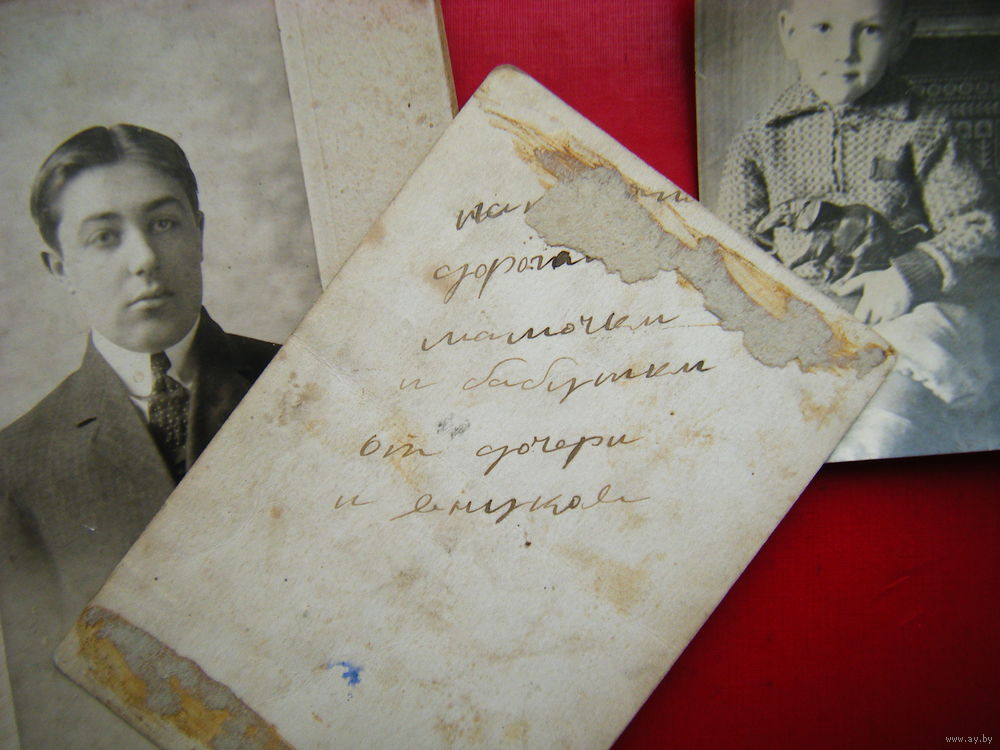 дорогой
мамочки
и бабушки
от дочери
и внуков
www.ay.by